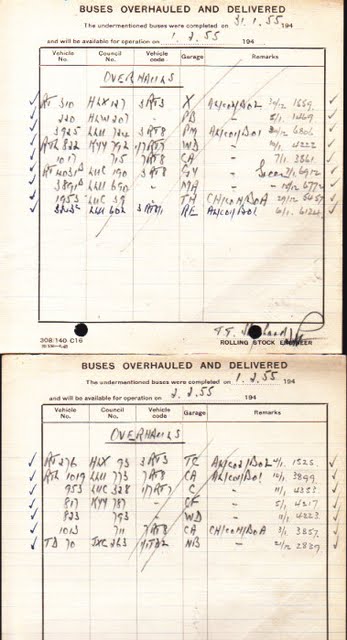 BUSES OVERHAULED AND DELIVERED
The undermentioned buses were completed on 31.1.55 194
and will be available for operation on 1.2.55 194
Vehicle No. Council No. Vehicle code Garage Remarks
OVERHAULS
RT 310 HLX 127 3RT3 X AH/CO2/BOL 30/12 1659
220 HLW 207 - PB " 5/1 1269
3925 LUU 724 3RT8 PM AH/CO1/BO1 6806
RTL 822 KYY 792 1/7RT7 WD " 4222
1017 715 7RT8 CA " 7/1 3861
RT 4031 LUC 190 3RT8 GY " 3/1 6912
3891 LUU 690 - MA " 6772
1953 LUC 39 TH CH/CO1/BOA 29/12 6457
LUU 602 3RT8/1 RE AH/CO1/BO1 6/1 6124
ROLLING STOCK ENGINEER
308/140 C16
BUSES OVERHAULED AND DELIVERED
The undermentioned buses were completed on 1.2.55 194
and will be available for operation on 2.2.55 194
Vehicle No. Council No. Vehicle code Garage Remarks
OVERHAULS
RT 276 HLX 93 3RT3 TC AH/CO2/BOL 4/1 1525
RTL 1019 LUU 711 7RT8 CA AH/CO1/BO1 10/1 3899
953 LUC 328 1/7RT7 C " 11/1 4353
817 KYY 787 - CF " 5/1 4217
823 793 - WD " 11/1 4223
1013 773 7RT8 CA CH/CO1/BOA 3/1 3857
TD 70 JXC 263 1/1TD2 NB " 21/12 2839